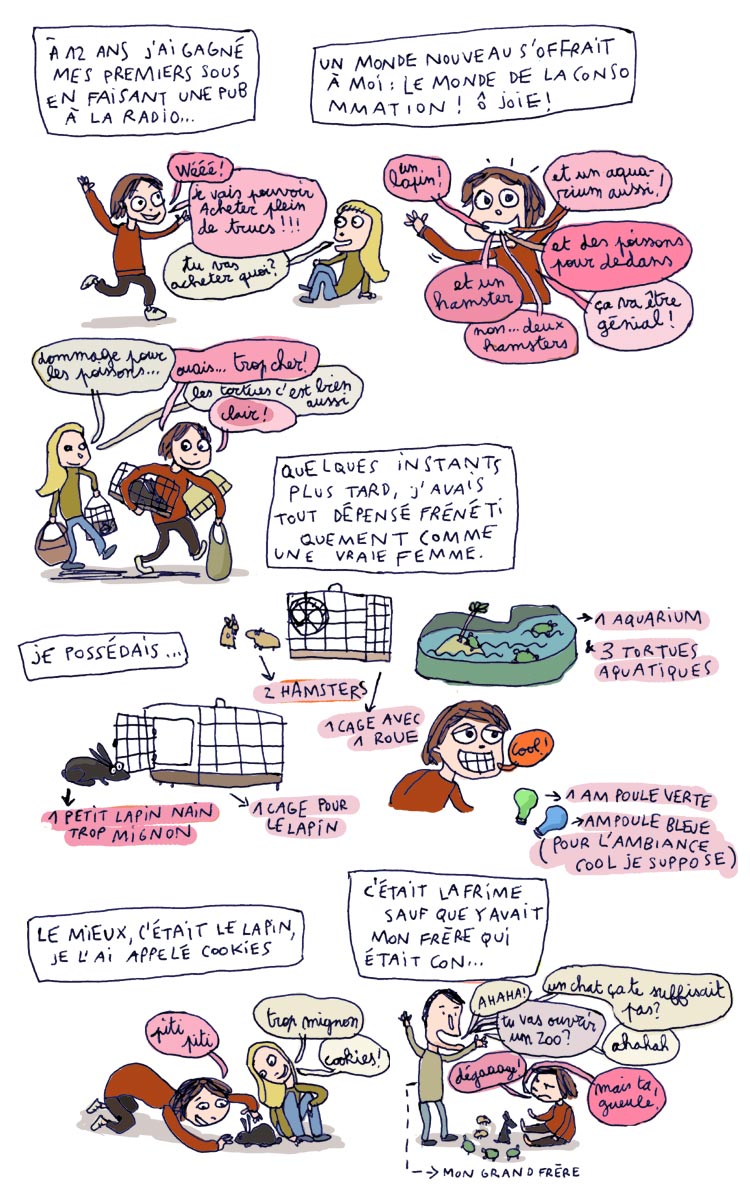 À 12 ANS J'AI GAGNÉ
MES PREMIERS SOUS
EN FAISANT UNE PUB
À LA RADIO...
UN MONDE NOUVEAU S'OFFRAIT
À MOI : LE MONDE DE LA CONSO
MMATION ! Ô JOIE !
Wééé !
je vais pouvoir
Acheter plein
de trucs !!!
tu vas
acheter quoi ?
un
lapin !
et un aqua-
rium aussi !
et des poissons
pour dedans
et un
hamster
non... deux
hamsters
ça va être
génial !
dommage pour
les poissons...
ouais... trop cher !
les tortues c'est bien
aussi
clair !
QUELQUES INSTANTS
PLUS TARD, J'AVAIS
TOUT DÉPENSÉ FRÉNÉTI
QUEMENT COMME
UNE VRAIE FEMME.
JE POSSÉDAIS...
2 HAMSTERS
1 CAGE AVEC
1 ROUE
1 AQUARIUM
& 3 TORTUES
AQUATIQUES
1 PETIT LAPIN NAIN
TROP MIGNON
1 CAGE POUR
LE LAPIN
cool !
1 AMPOULE VERTE
AMPOULE BLEUE
(POUR L'AMBIANCE
COOL JE SUPPOSE)
LE MIEUX, C'ÉTAIT LE LAPIN,
JE L'AI APPELÉ COOKIES
C'ÉTAIT LA FRIME
SAUF QUE Y AVAIT
MON FRÈRE QUI
ÉTAIT CON...
piti
piti
trop mignon
cookies !
AHAHA !
un chat ça te suffisait
pas ?
tu vas ouvrir
un zoo ?
ahahah
dégaaage !
mais ta
gueule !
MON GRAND FRÈRE